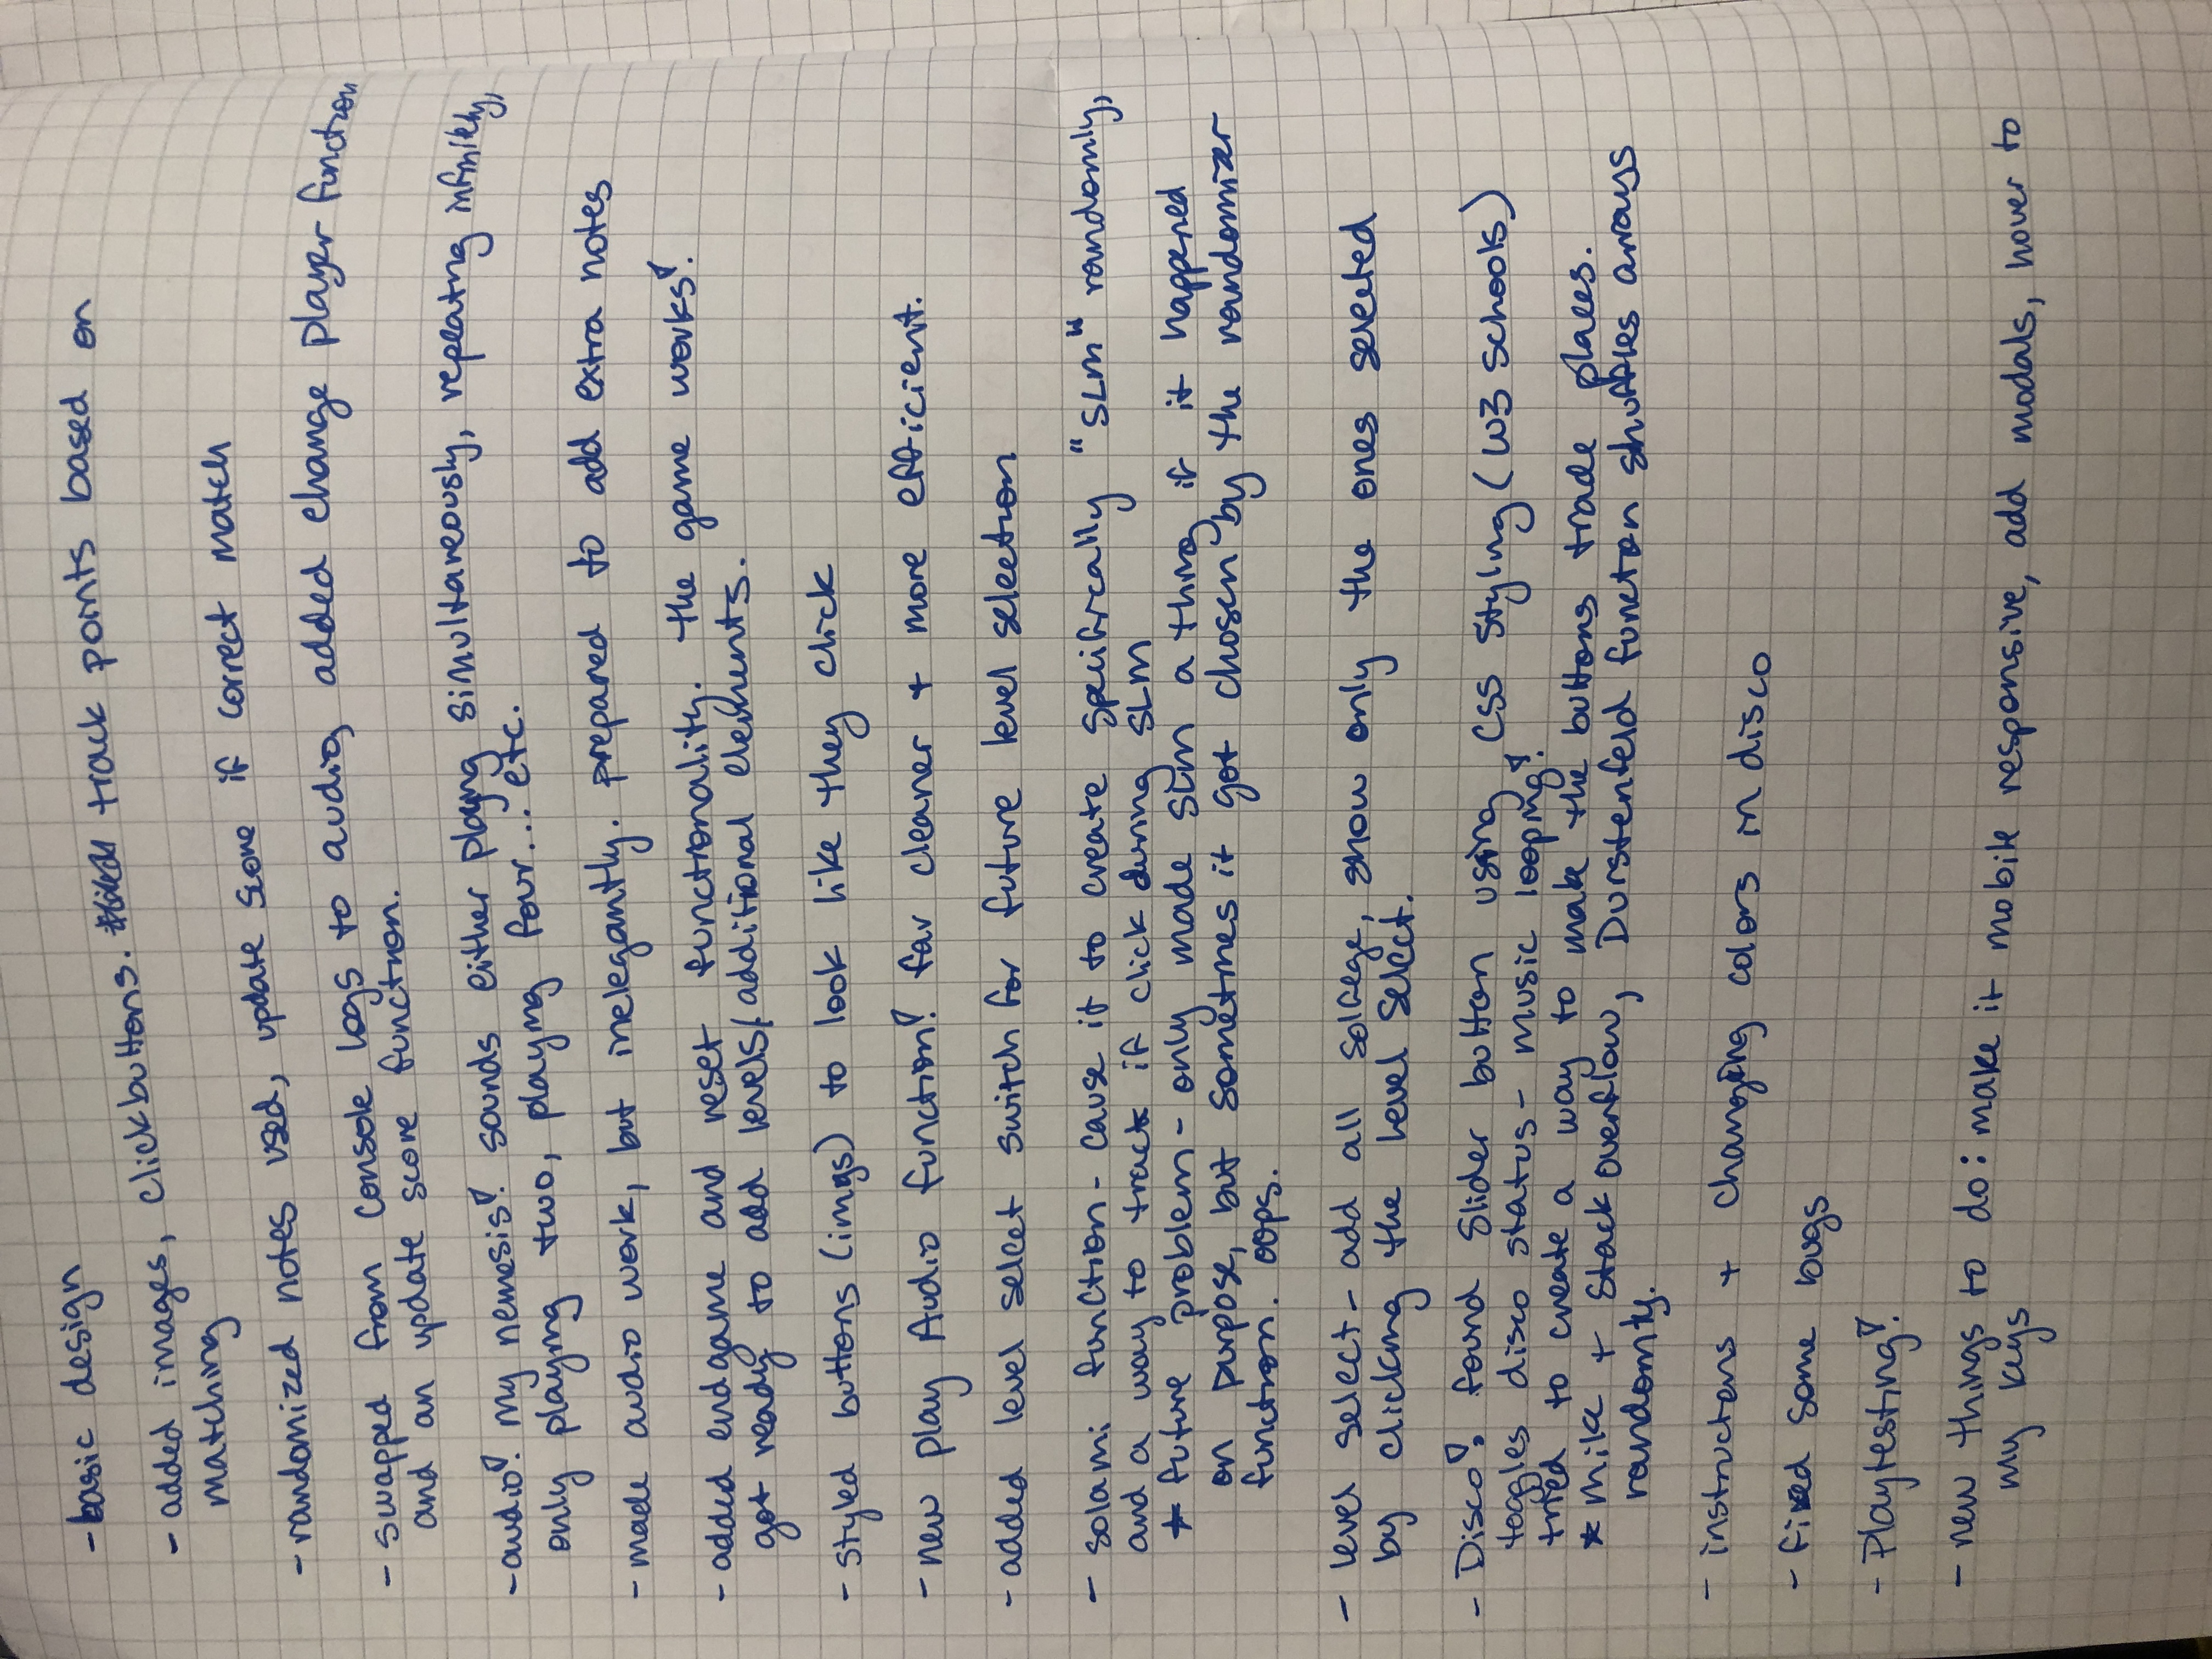 - basic design
- added images, clickbuttons. track points based on
matching
- randomized notes used, update score if correct match
- swapped from console logs to audio, added change player function
and an update score function.
- audio! my nemesis! sounds either playing simultaneously, repeating infinitely,
only playing two, playing four... etc.
- made audio work, but inelegantly. prepared to add extra notes
- added endgame and reset functionality. the game works!
got ready to add levels/additional elements.
- styled buttons (imgs) to look like they click
- new play Audio function! far cleaner + more efficient.
- added level select switch for future level selection
- solami function - cause it to create specifically "SLM" randomly,
and a way to track if click during SLM
* future problem - only made SLM a thing if it happened
on purpose, but sometimes it got chosen by the randomizer
function. oops.
- level select - add all solfege, show only the ones selected
by clicking the level select.
- Disco! found slider button using CSS styling (W3 Schools)
toggles disco status - music looping!
tried to create a way to make the buttons trade places.
* Mike + Stack overflow, Durstenfeld function shuffles arrays
randomly.
- instructions + changing colors in disco
- fixed some bugs
- Playtesting!
- new things to do: make it mobile responsive, add modals, hover to
my keys